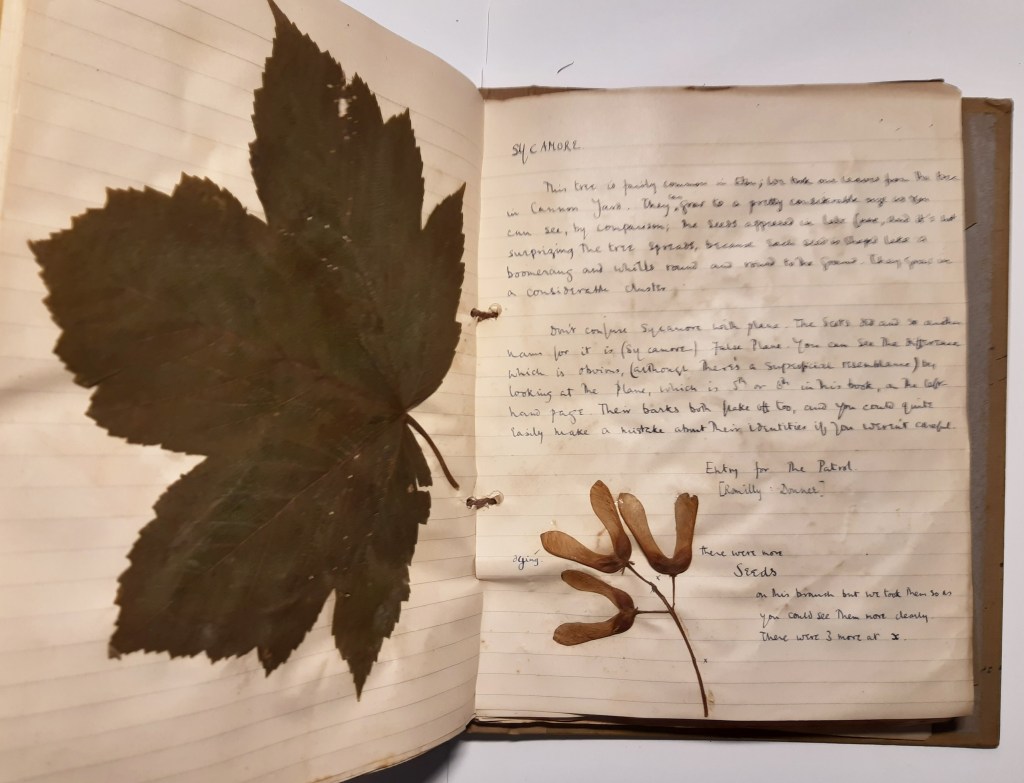 SYCAMORE
This tree is fairly common in Eton; we took our leaves from the tree
in Cannon Yard. They can grow to a pretty considerable size as you
can see, by comparison; the seeds appeared in late June, and it's not
surprizing the tree spreads, because each seed is shaped like a
boomerang and whirls round and round to the ground. They grow in
a considerable cluster.
Don't confuse Sycamore with plane. The Scots did and so another
name for it is (Sycamore) False Plane. You can see the difference
which is obvious, (although there's a superficial resemblance) by
looking at the Plane, which is 5th or 6th in this book, on the left-
hand page. Their barks both flake off too, and you could quite
easily make a mistake about their identities if you weren't careful.
Entry for The Patrol
[Romilly: Donnet]
there were more
Seeds
on this branch but we took them so as
you could see them more clearly
There were 3 more at x.
x
x